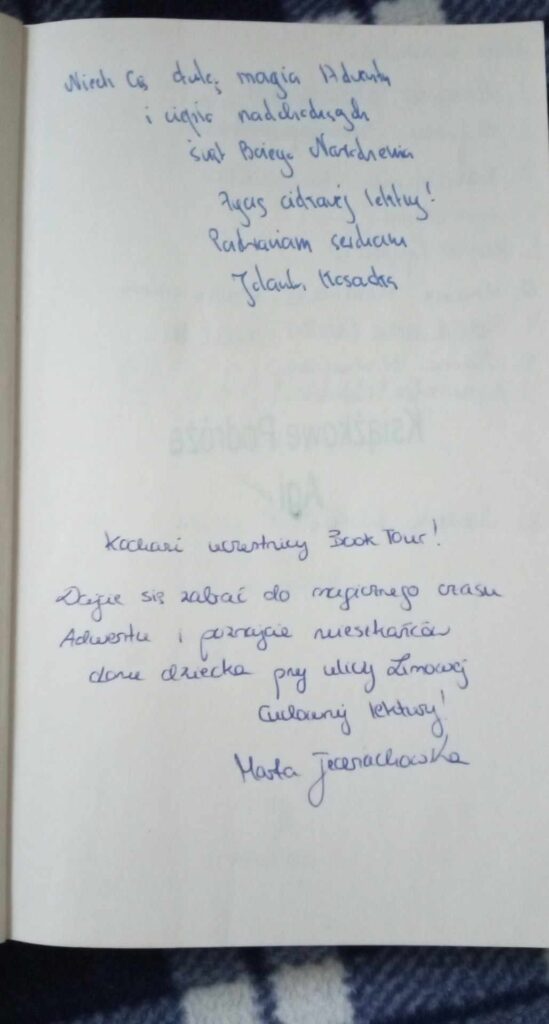 Niech Cię otulą magia Adwentu
i ciepło nadchodzących
świąt Bożego Narodzenia
Życzę ciekawej lektury!
Pozdrawiam serdecznie
Jolanta Kosowska
Książkowe Podróże
Agi
Kochani uczestnicy Book Tour!
Dajcie się zabrać do magicznego czasu
Adwentu i poznajcie mieszkańców
domu dziecka przy ulicy Zimowej
Cudownej lektury!
Marta Jednachowska